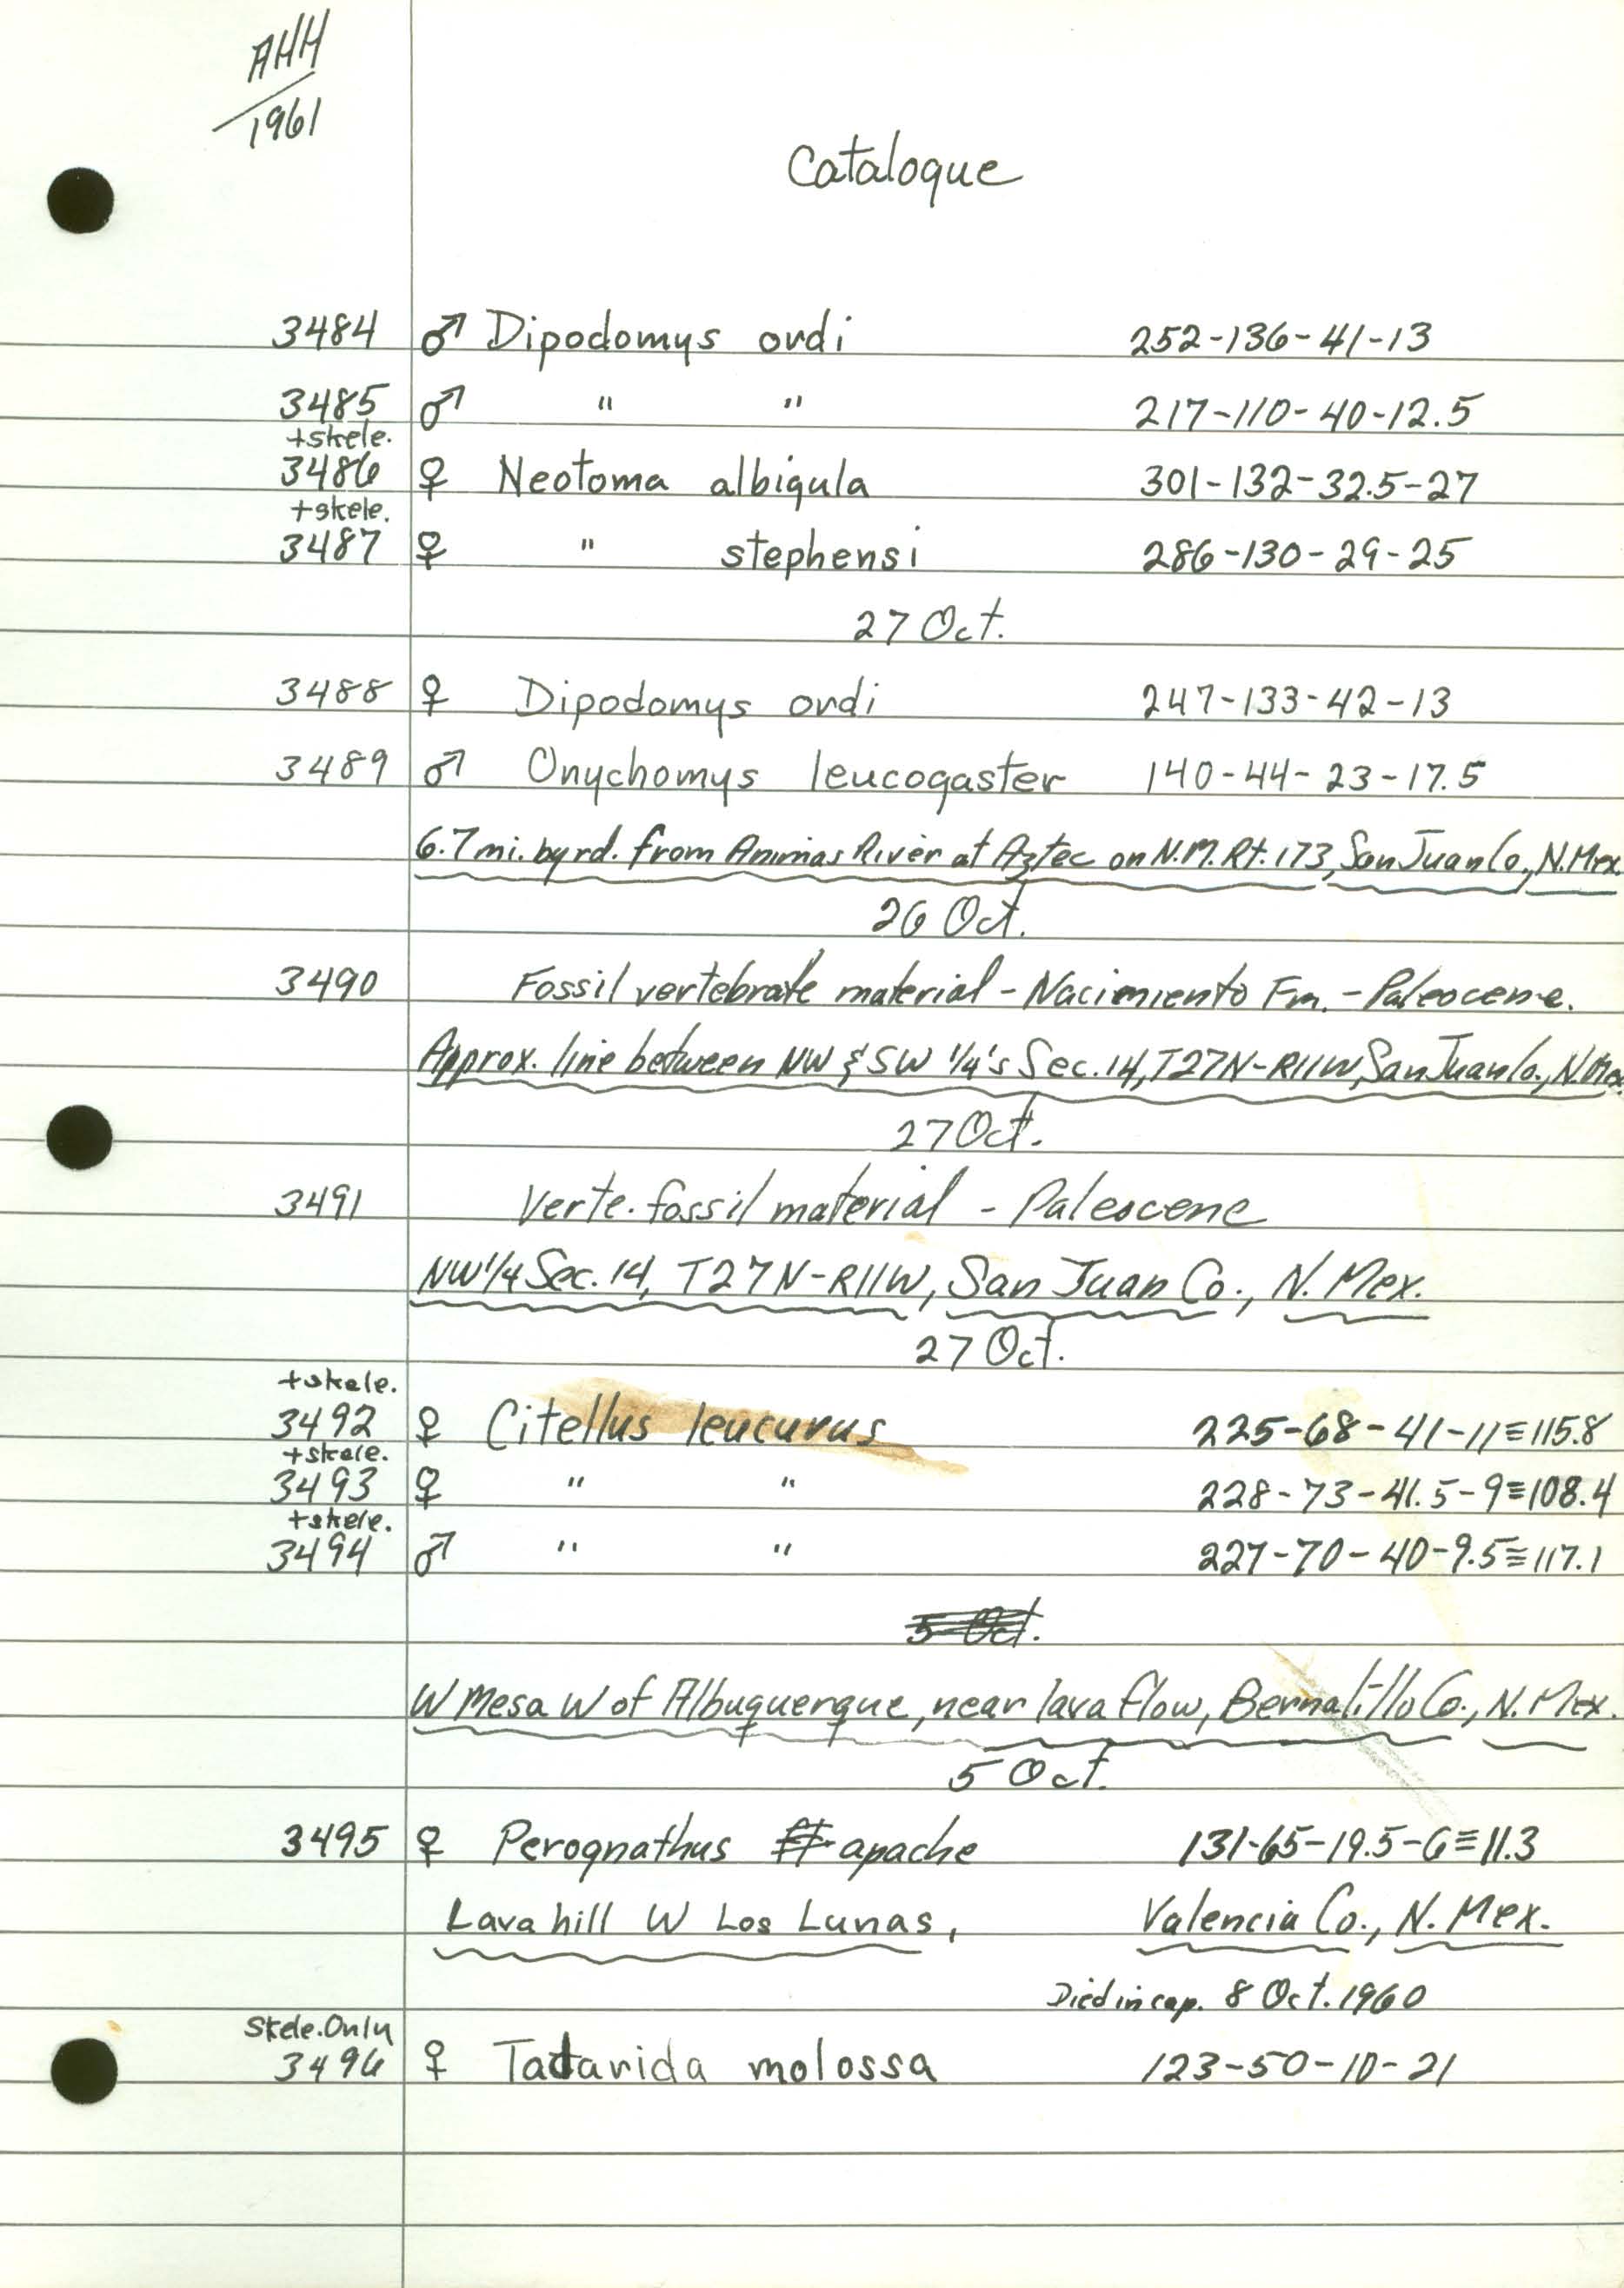 AHH
1961
Catalogue
3484 ♂ Dipodomys ordi 252-136-41-13
3485 ♂ " " 217-110-40-12.5
+skele.
3486 ♀ Neotoma albigula 301-132-32.5-27
+skele.
3487 ♀ " stephensi 286-130-29-25
27 Oct.
3488 ♀ Dipodomys ordi 247-133-42-13
3489 ♂ Onychomys leucogaster 140-44-23-17.5
6.7 mi. by rd. from Animas River at Aztec on N.M. Rt. 173, San Juan Co., N. Mex.
26 Oct.
3490 Fossil vertebrate material - Nacimiento Fm. - Paleocene.
Approx. line between NW & SW 1/4's Sec. 14, T27N-R11W, San Juan Co., N. Mex.
27 Oct.
3491 Verte. fossil material - Paleocene
NW 1/4 Sec. 14, T27N-R11W, San Juan Co., N. Mex.
27 Oct.
+skele.
3492 ♀ Citellus leucurus 225-68-41-11≡115.8
+skele.
3493 ♀ " " 228-73-41.5-9≡108.4
+skele.
3494 ♂ " " 227-70-40-9.5≡117.1
5 Oct.
W Mesa W of Albuquerque, near lava flow, Bernalillo Co., N. Mex.
5 Oct.
3495 ♀ Perognathus apache 131-65-19.5-6≡11.3
Lava hill W Los Lunas, Valencia Co., N. Mex.
Died in cap. 8 Oct. 1960
Skele. Only
3496 ♀ Tadarida molossa 123-50-10-21